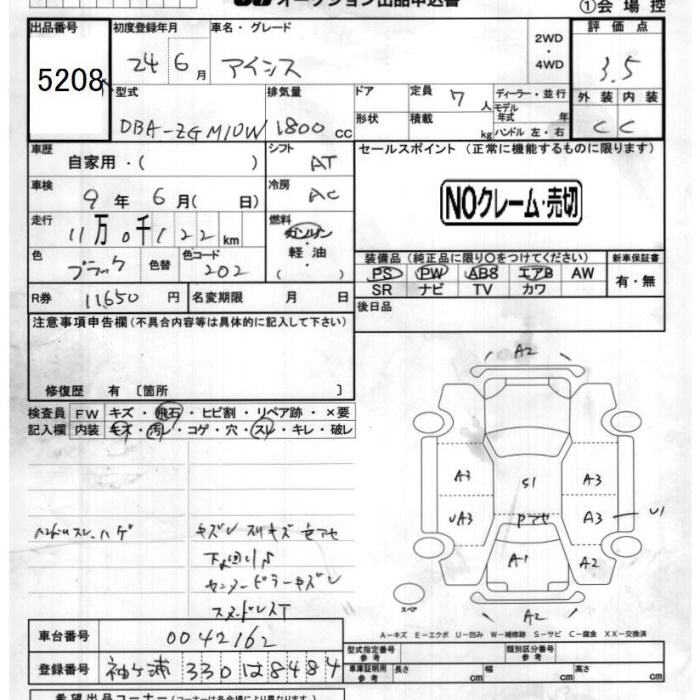 オークション出品申込書
①会場控
出品番号
5208
初度登録年月
24 6月
車名・グレード
アイシス
2WD
・
4WD
評価点
3.5
型式
DBA-ZGM10W
排気量
1800 cc
ドア
形状
定員 7人
積載 kg
ディーラー・並行
モデル年式 年
ハンドル 左・右
外装 内装
C C
車歴
自家用・( )
シフト
AT
セールスポイント (正常に機能するものに限ります)
NOクレーム・売切
車検
9年 6月( 日)
冷房
AC
走行
11万0千122 km
燃料
ガソリン
・
軽油
( )
色
ブラック
色替
色コード
202
装備品(純正品に限り○をつけてください)
新車保証書
PS PW ABS エアB AW
SR ナビ TV カワ
有・無
R券 11,650 円
名変期限 月 日
後日品
注意事項申告欄(不具合内容等は具体的に記入して下さい)
修復歴 有 〔箇所 〕
検査員記入欄
FW キズ・飛石・ヒビ割・リペア跡・×要
内装 キズ・汚レ・コゲ・穴・スレ・キレ・破レ
A2
A3 S1 A3
UA3 A3 U1
A1 A2
スペア
A2
ハンドルスレ、ハゲ
下廻り
センターピラーキズ
スタッドレスT
A-キズ E-エクボ U-凹み W-補修跡 S-サビ C-腐食 XX-交換済
車台番号 0042162
登録番号 袖ケ浦 330 は 8484
型式指定番号 参考
類別区分番号 参考
車庫証明用 参考
長さ cm
幅 cm
高さ cm
希望出品コーナー(コーナーは各会場により異なります)